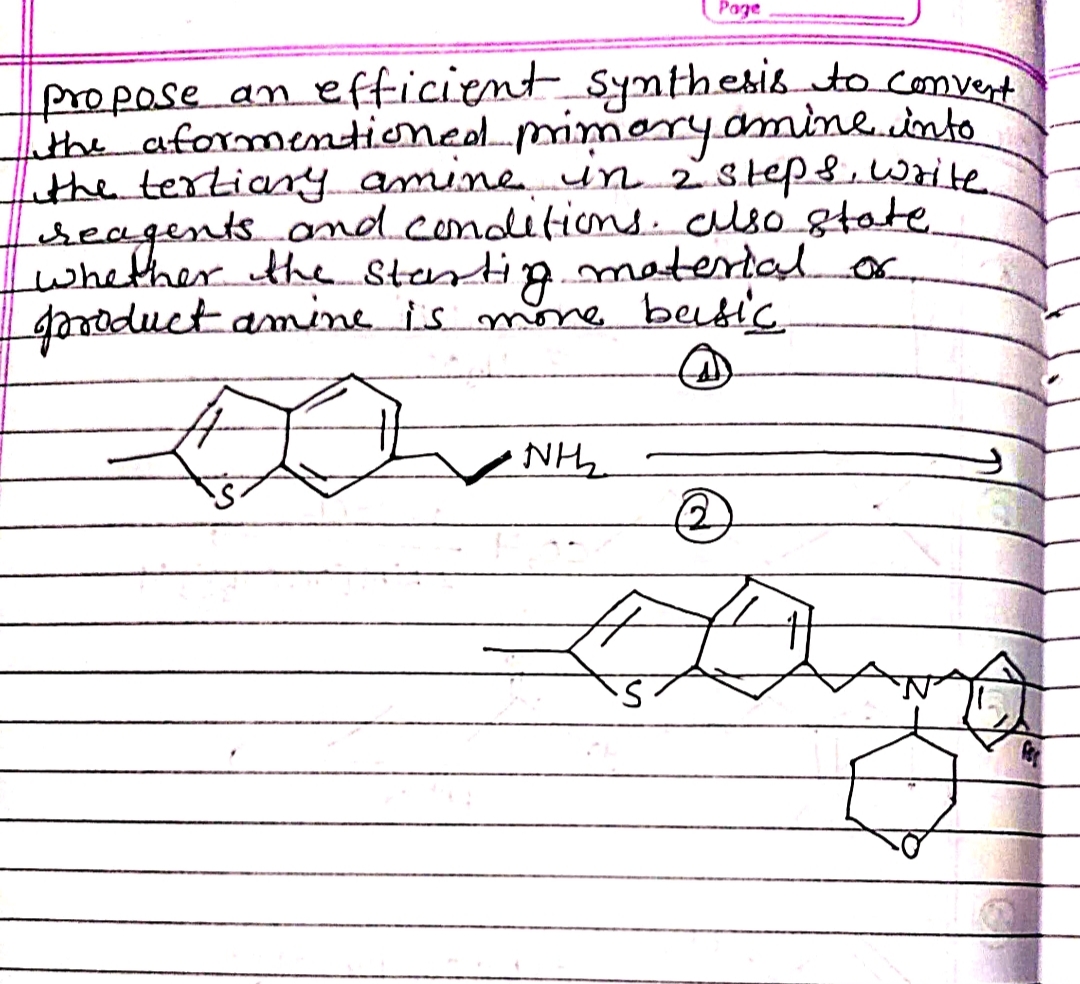 Page
propose an efficient synthesis to convert
the aformentioned primary amine into
the tertiary amine in 2 steps. write
reagents and conditions. also state
whether the startig material or
product amine is more basic
1
NH2
S
2
S
N
O